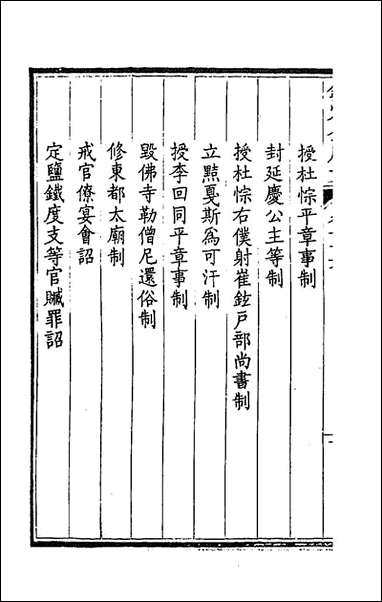 授杜悰平章事制
封延慶公主等制
授杜悰右僕射崔鉉戸部尚書制
立黠戛斯為可汗制
授李回同平章事制
毀佛寺勒僧尼還俗制
修東都太廟制
戒官僚宴會詔
定鹽鐵度支等官贓罪詔